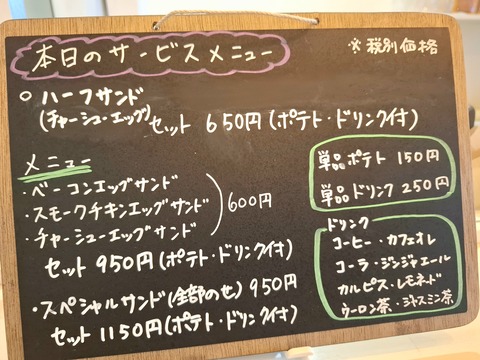 本日のサービスメニュー
※税別価格
○ハーフサンド
(チャーシュー・エッグ)
セット 650円(ポテト・ドリンク付)
メニュー
・ベーコンエッグサンド
・スモークチキンエッグサンド
・チャーシューエッグサンド
600円
セット 950円(ポテト・ドリンク付)
・スペシャルサンド(全部のせ) 950円
セット 1150円(ポテト・ドリンク付)
単品ポテト 150円
単品ドリンク 250円
ドリンク
コーヒー・カフェオレ
コーラ・ジンジャエール
カルピス・レモネード
ウーロン茶・ジャスミン茶